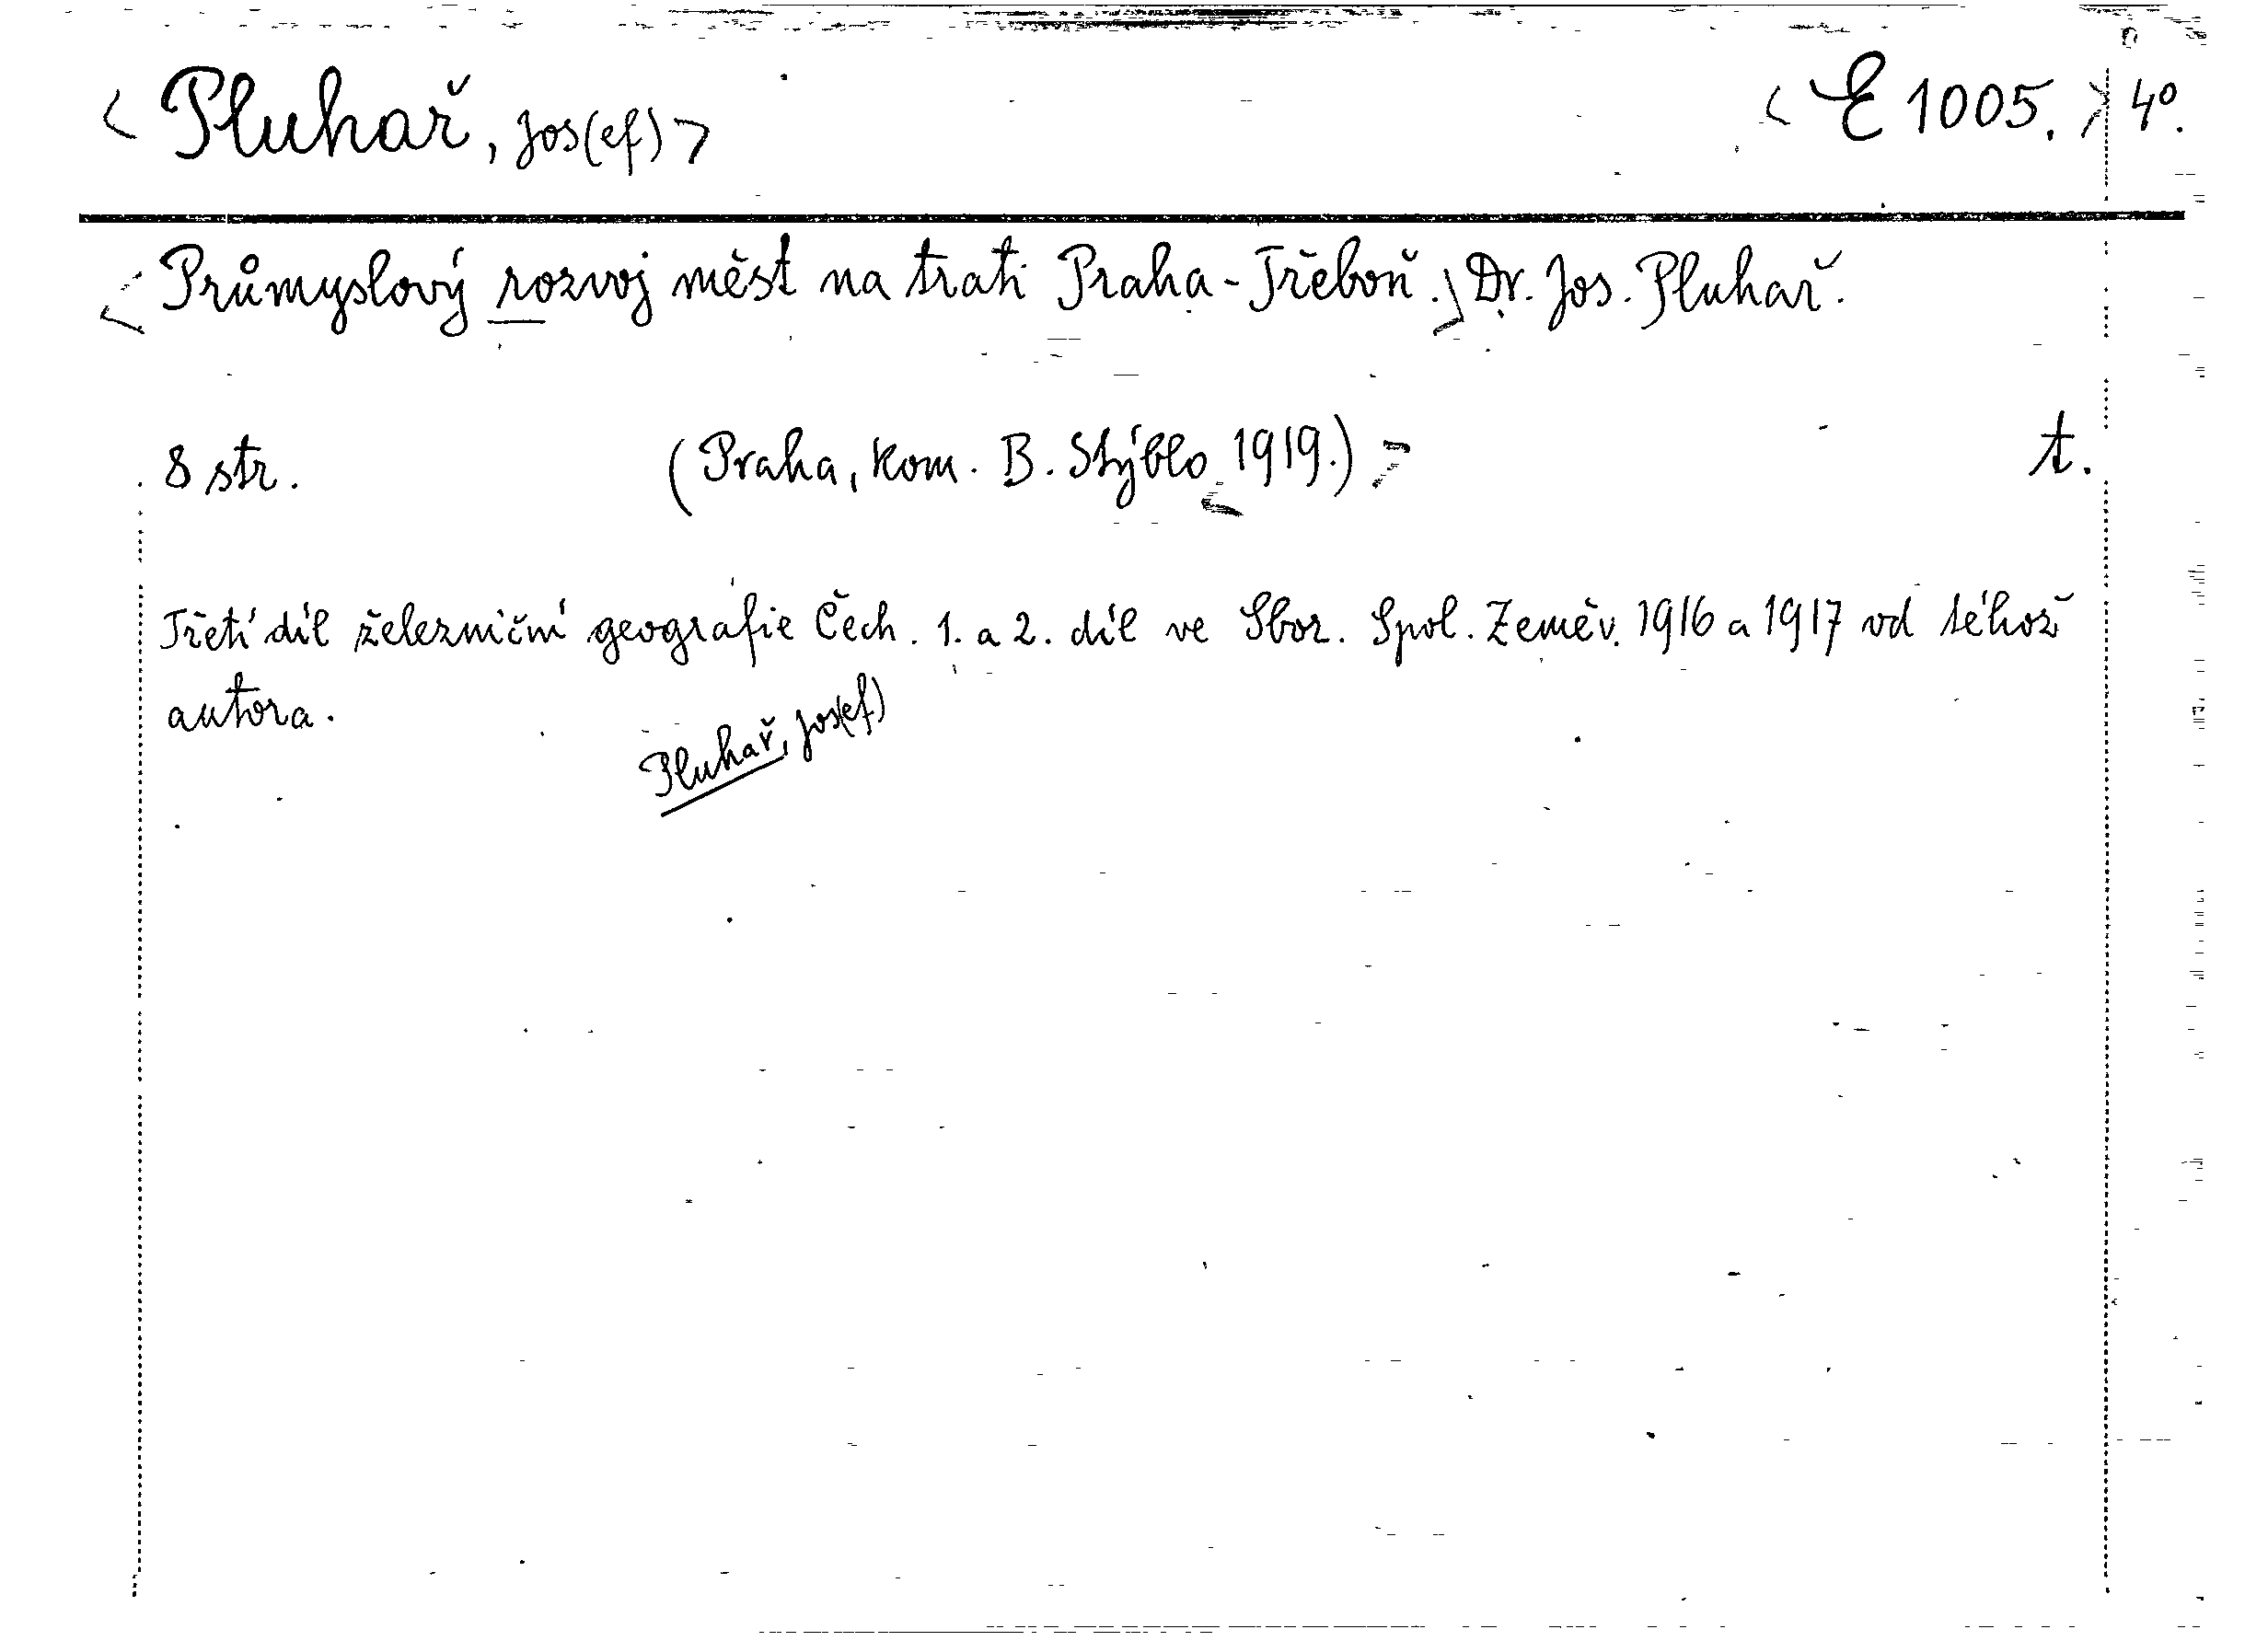 < Pluhař, Jos(ef) > < E 1005. > 4°.
< Průmyslový rozvoj měst na trati Praha-Třeboň. > Dr. Jos. Pluhař.
8 str. (Praha, kom. B. Stýblo 1919.) > t.
Třetí díl železniční geografie Čech. 1. a 2. díl ve Sbor. Spol. Zeměv. 1916 a 1917 od téhož
autora.
Pluhař, Jos(ef)